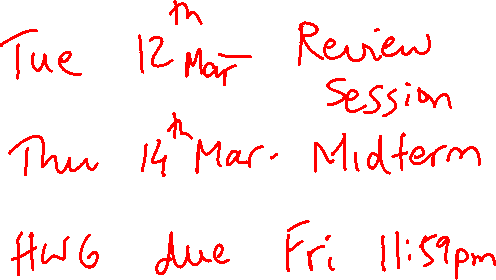 Tue 12th Mar Review Session
Thu 14th Mar. Midterm
HW6 due Fri 11:59pm